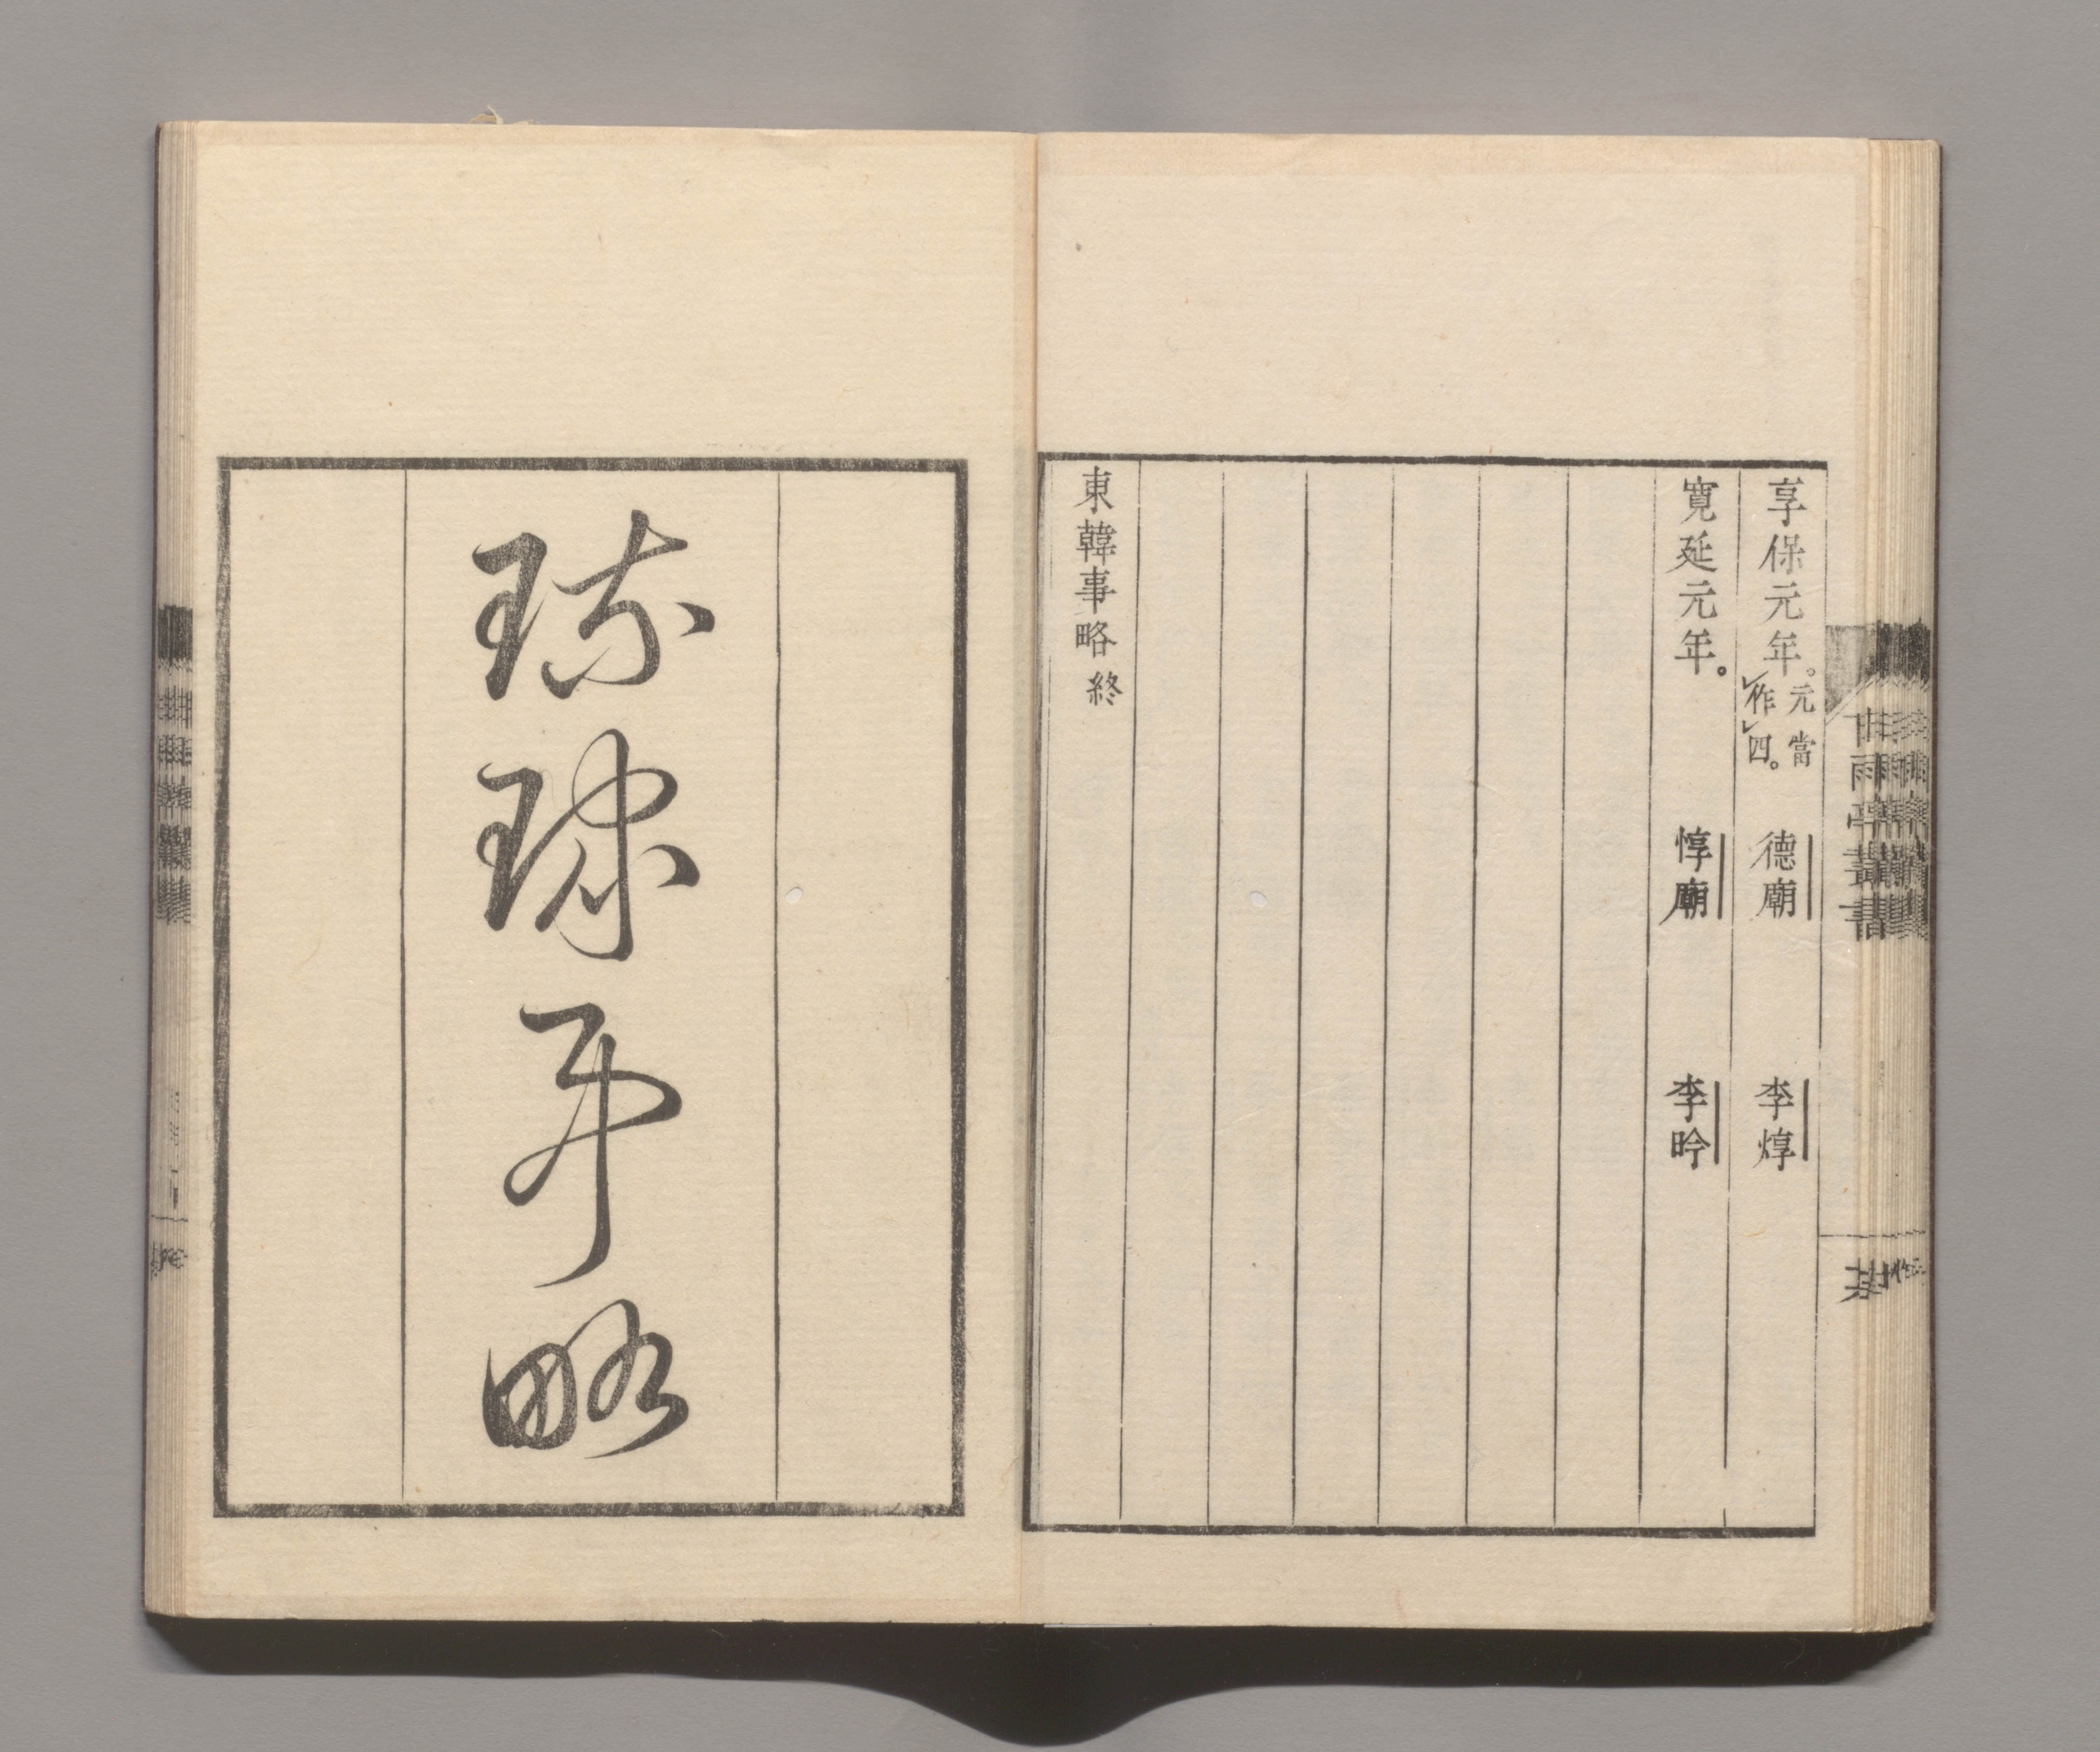 享保元年。元當作四。 德廟 李焞
寬延元年。 惇廟 李昑
東韓事略 終
甘雨亭叢書
琉球事略